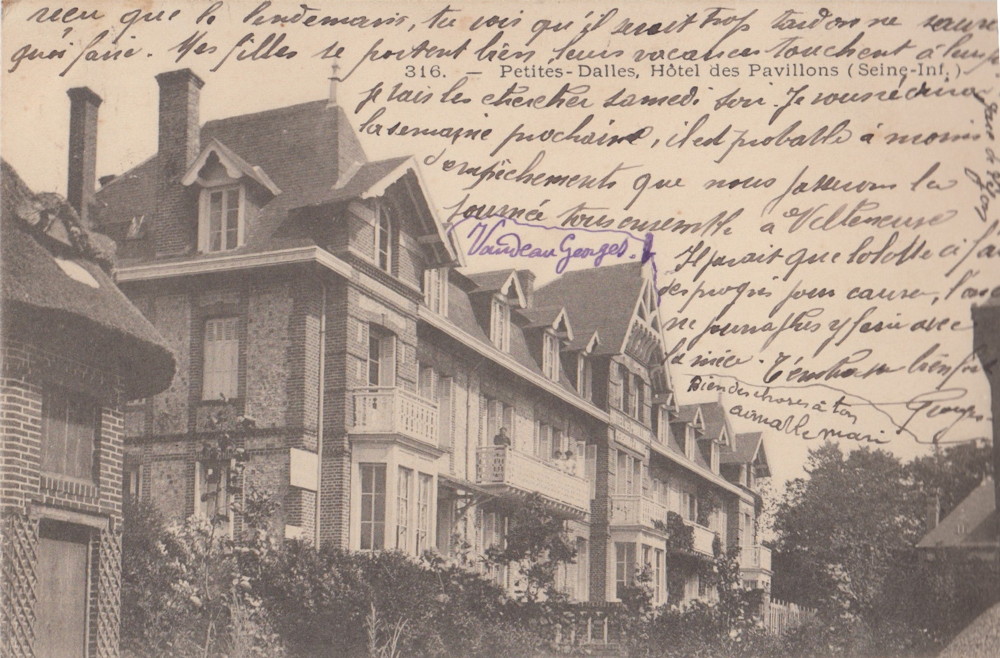 reçu que le lendemain, tu vois qu'il serait trop tard on ne saura
quoi faire. Mes filles se portent bien, leurs vacances touchent à leur
316. — Petites-Dalles, Hôtel des Pavillons (Seine-Inf.)
je vais les chercher samedi soir. Je vous écrirai
la semaine prochaine, il est probable à moins
d'empêchements que nous passerons la
journée tous ensemble à Villeneuse
Vandeau Georges.
Il parait que Lolotte a fait
des progrès pour causer, l'on
ne s'ennuie avec
la nièce. T'embrasse bien fort
Georges
Bien des choses à ton
aimable mari